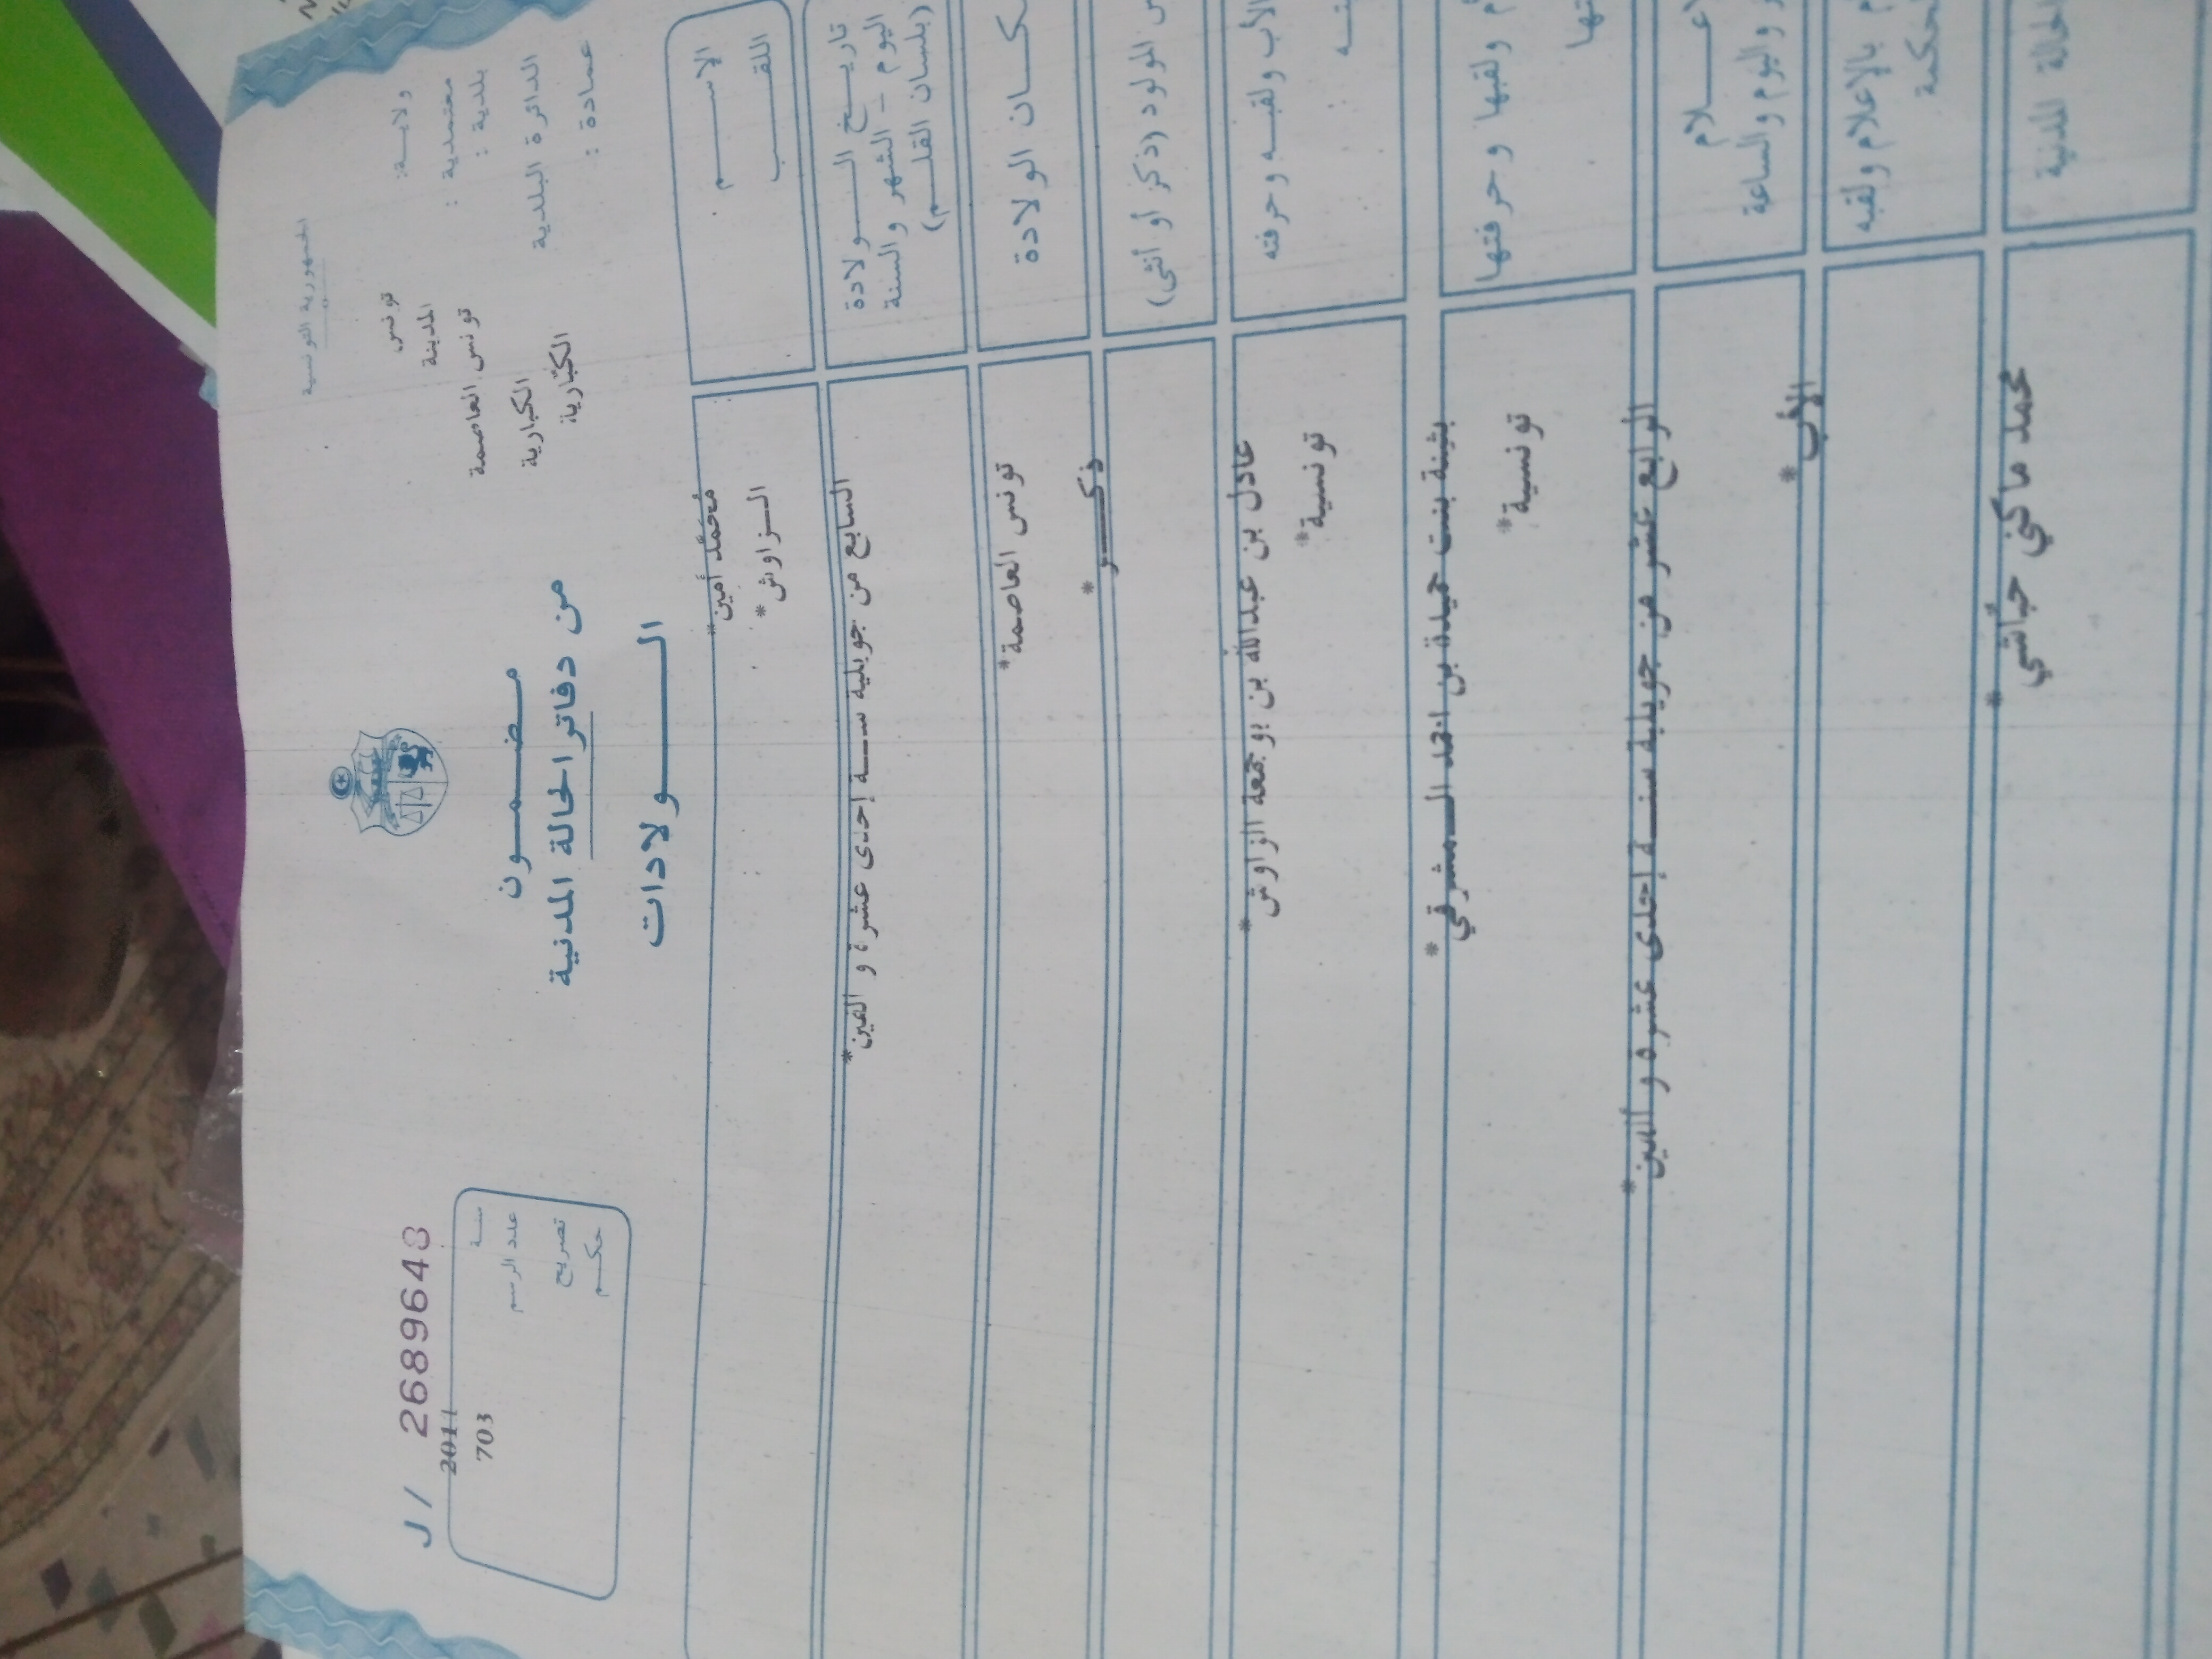 الجمهورية التونسية
ولايـة: تونس
معتمدية: المدينة
بلدية: تونس العاصمة
الدائرة البلدية الكبارية
عمادة: الكبّارية
مضـمـون
من دفاتر الحالة المدنية
الــولادات
J / 2689648
سنـة 2011
عدد الرسم 703
تصريح
حكـم
الإســم مُحَمَّد أمين*
اللقــب الـزاوش*
تاريـخ الـولادة
اليوم - الشهر والسنة
(بلسان القلـم)
السابع من جويلية سـنة إحدى عشرة و ألفين*
الولادة تونس العاصمة*
المولود (ذكر أو أنثى) ذكــر*
الأب ولقبـه وحرفته عادل بن عبدالله بن بوجمعة الزاوش*
تونسية*
ولقبها وحرفتها بثينة بنت حميدة بن احمد الـمشرقي*
تونسية*
واليوم والساعة الرابع عشر من جويلية سنـة إحدى عشرة و ألفين*
بالإعلام ولقبه الأب*
الحالة المدنية محمد ماكني حبّاشي*